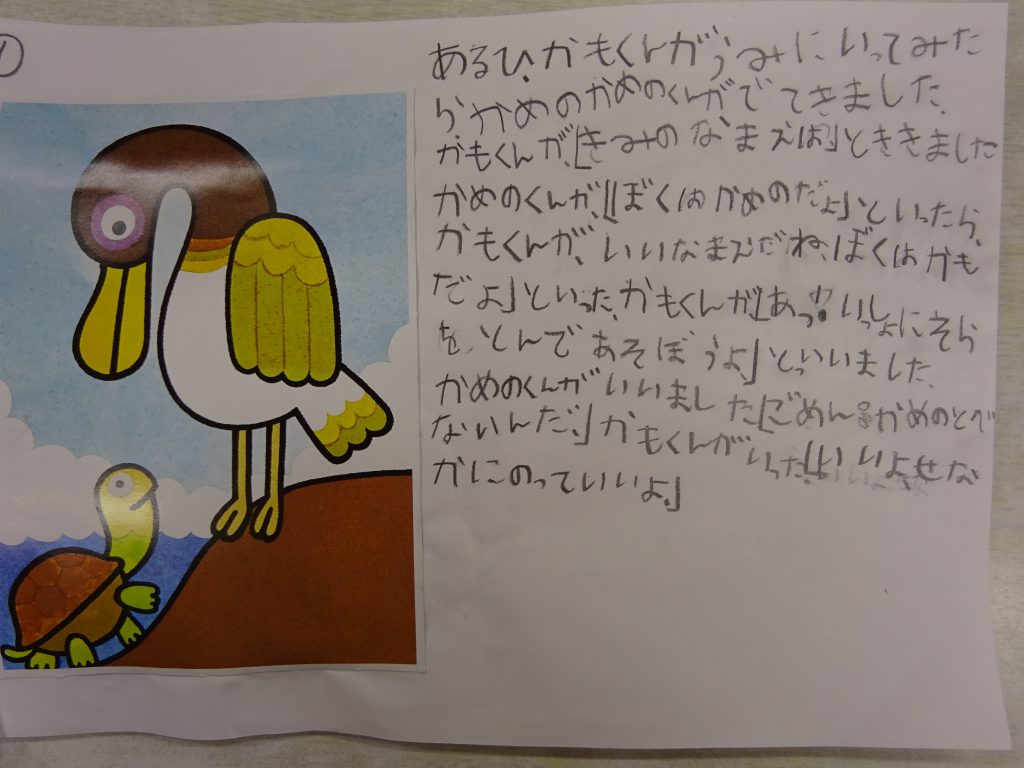 1
あるひ、かもくんがうみにいってみた
ら、かめのかめのくんがでてきました、
かもくんが、「きみのなまえは」とききました
かめのくんが、「ぼくはかめのだよ」といったら、
かもくんが、いいなまえだね、ぼくはかも
だよ」といった、かもくんが「あっ!いっしょにそら
を、とんであそぼうよ」といいました、
かめのくんがいいました「ごめん。かめのとべ
ないんだ、」かもくんがいった「いいよ、せな
かにのっていいよ、」